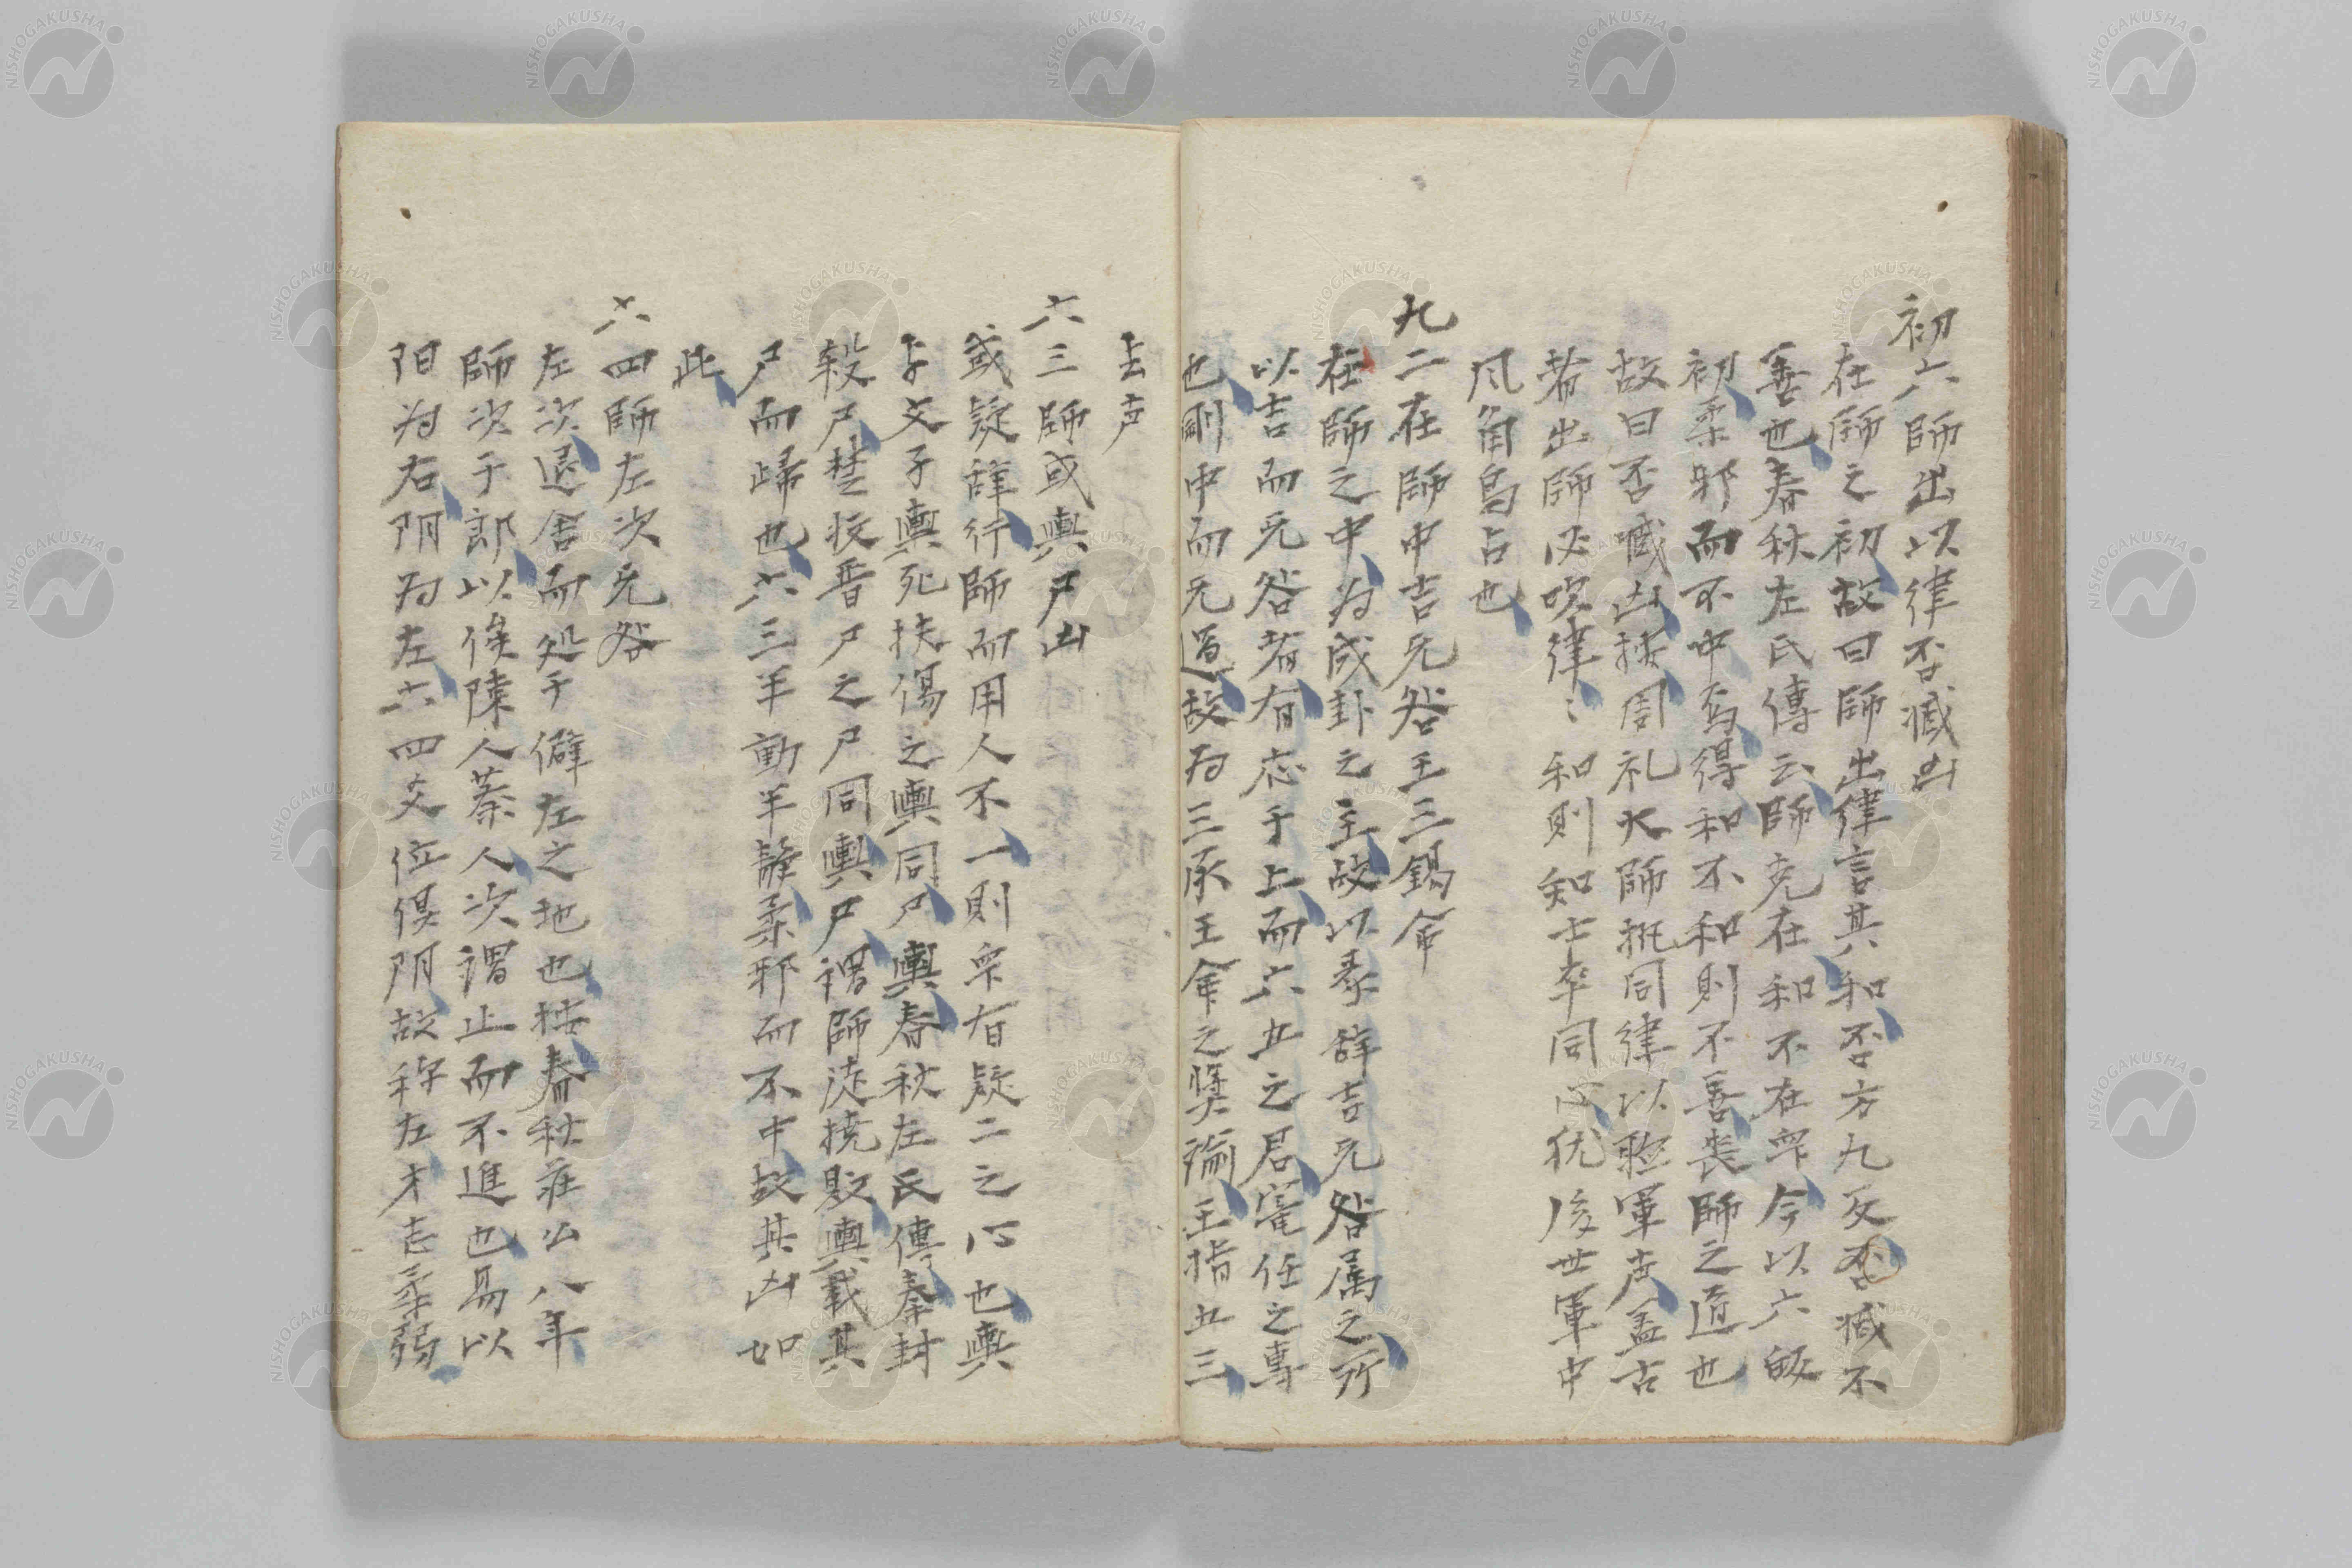 初六師出以律否臧凶
在師之初故曰師出律言其和否方九反否臧不
善也春秋左氏傳云師克在和不在衆今以六皈
初柔邪而不中烏得和不和則不善喪師之道也
故曰否臧凶按周礼大師執同律以聴軍声盖古
者出師必吹律〻和則知士卒同心优後世軍中
風角鳥占也
九二在師中吉无咎王三錫命
在師之中为成卦之主故以彖辞吉无咎属之所
以吉而无咎者有応于上而六五之君寵任之専
也剛中而无過故为三承王命之奨諭王指五三
去声
六三師或輿尸凶
或疑辞行師而用人不一則衆有疑二之心也輿
与文子輿死扶傷之輿同尸輿春秋左氏傳秦封
殽尸楚收晋尸之尸同輿尸謂師徒撓敗輿載其
尸而歸也六三半動半静柔邪而不中故其凶如
此
六四師左次无咎
左次退舎而処于僻左之地也按春秋荘公八年
師次于郎以俟陳人蔡人次謂止而不進也易以
阳为右阴为左六四爻位俱阴故称左才志柔弱